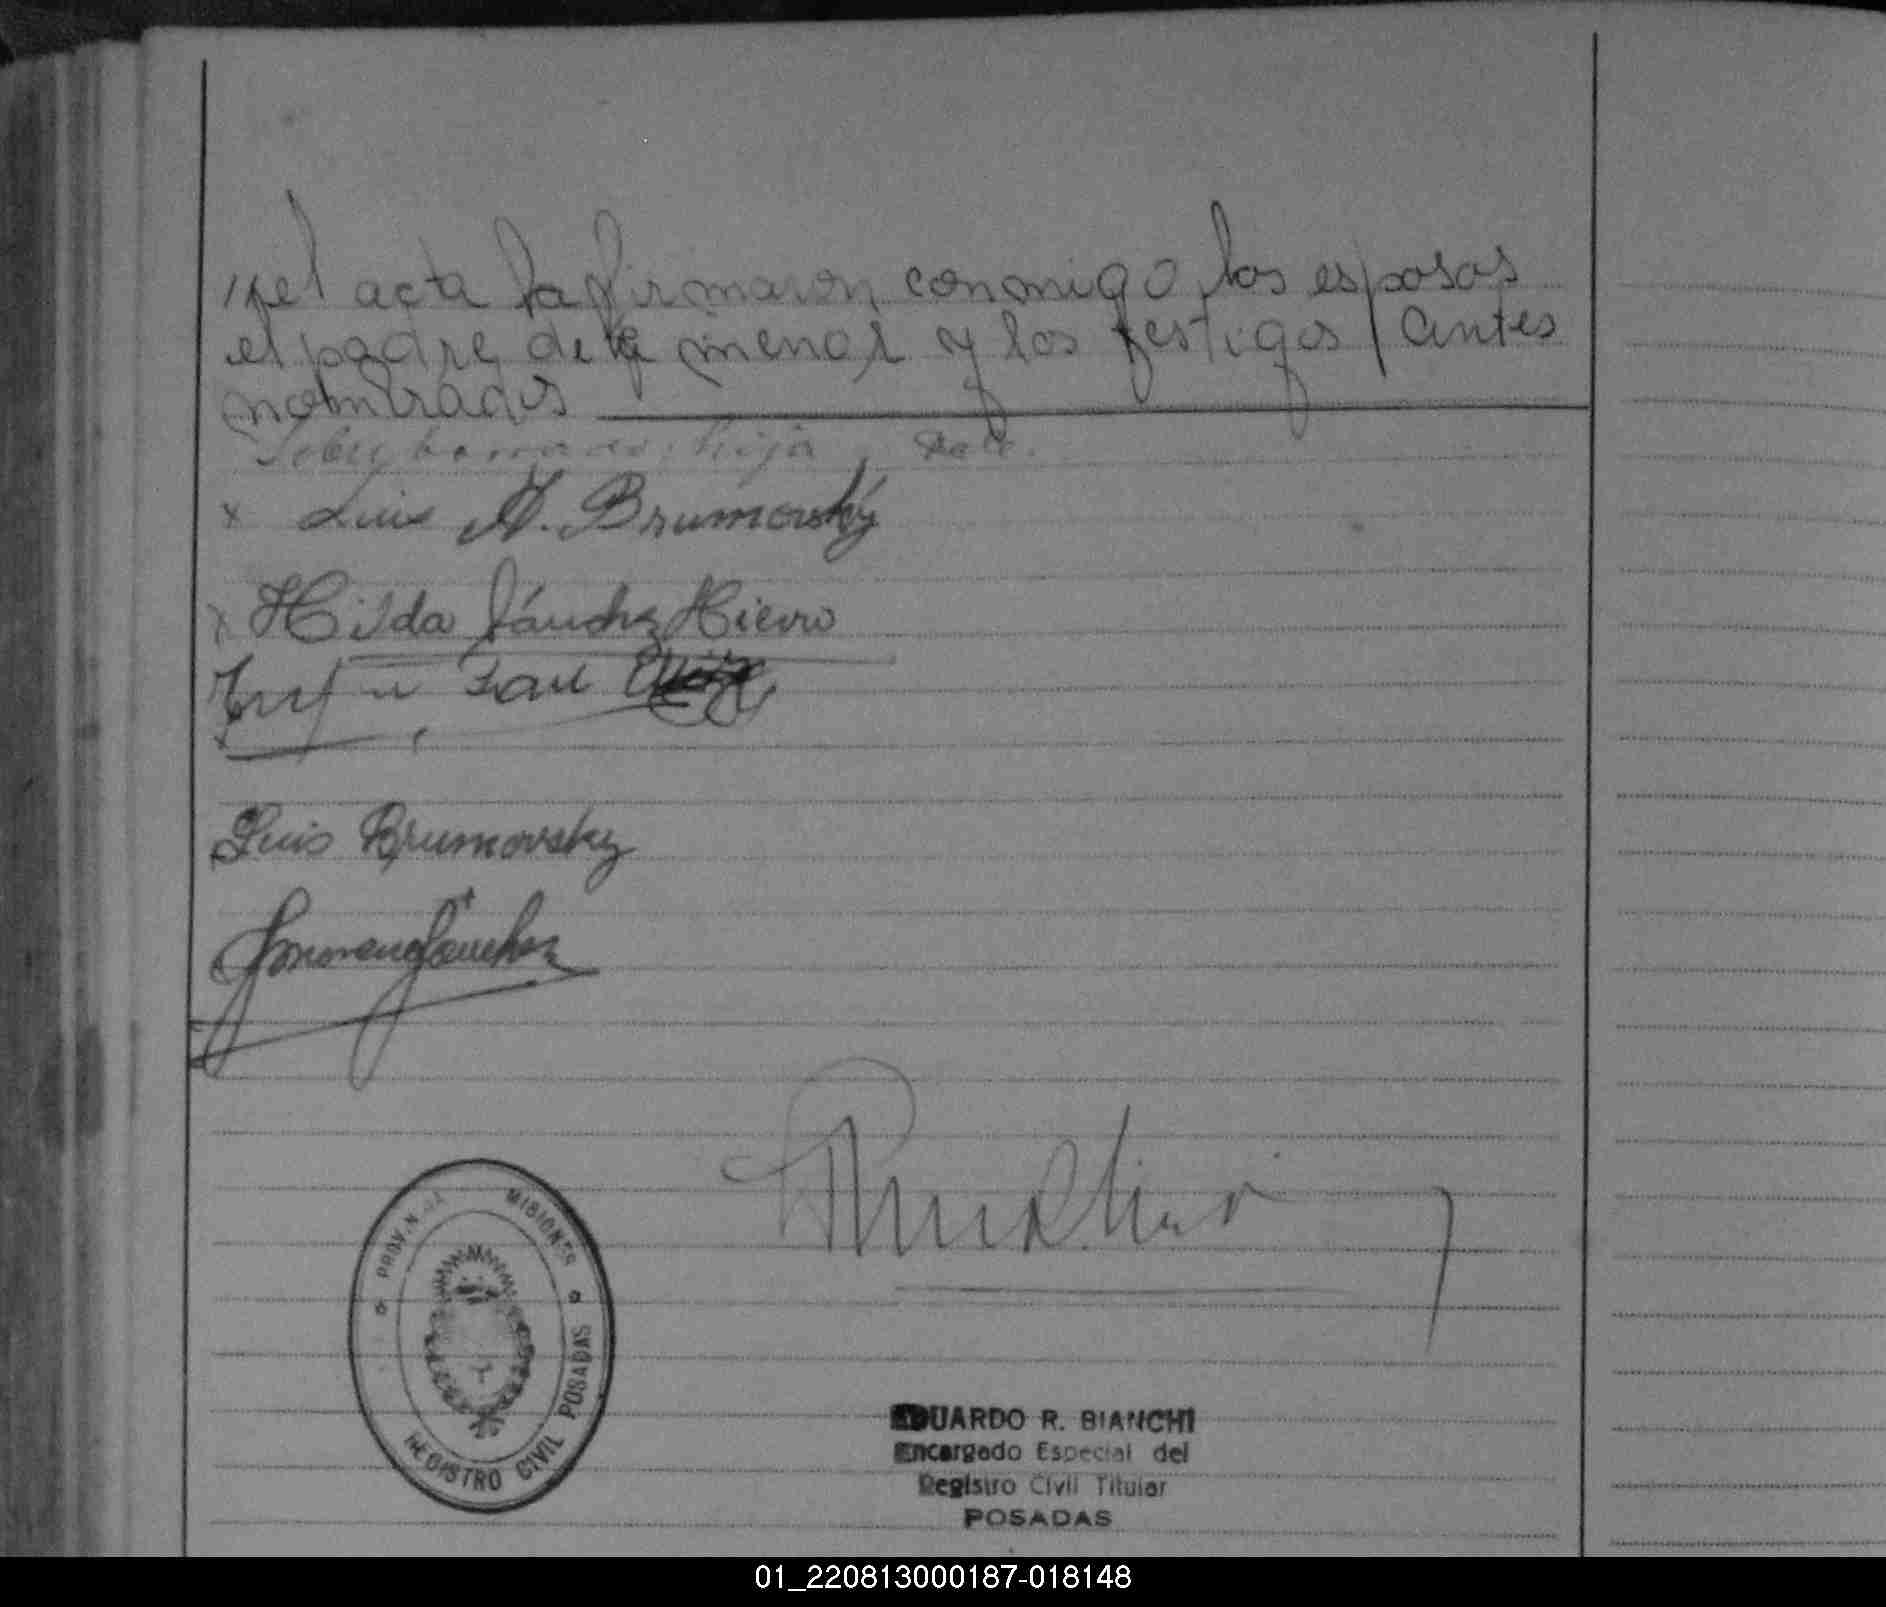 el acta la firmaron conmigo los esposos
el padre de la menor y los testigos antes
nombrados
Sobre borrado: hija, Vale.
x Luis A. Brumovský
x Hilda Sánchez Hierro
Luis Brumovsky
Sánchez
PROVINCIA MISIONES
REGISTRO CIVIL POSADAS
EDUARDO R. BIANCHI
Encargado Especial del
Registro Civil Titular
POSADAS
01_220813000187-018148